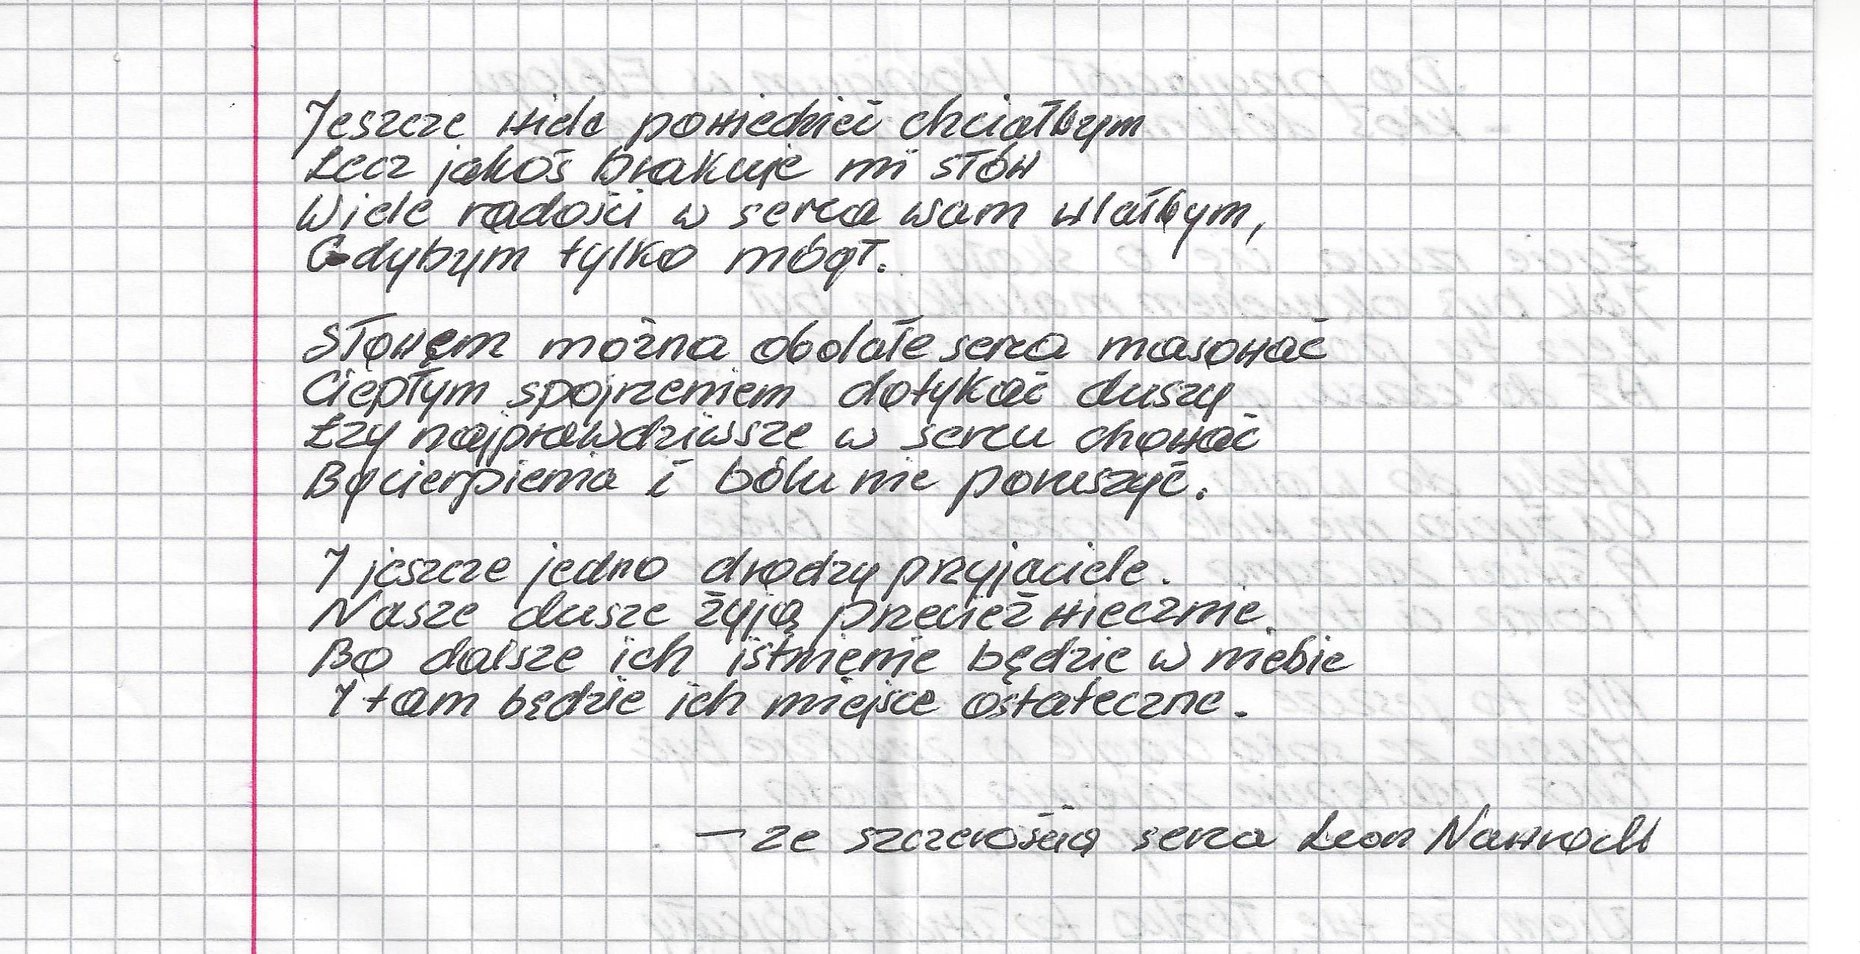 Jeszcze wiele powiedzieć chciałbym
Lecz jakoś brakuje mi słów
Wiele radości w serca wam wlałbym,
Gdybym tylko mógł.
Słowem można obolałe serca masować
Ciepłym spojrzeniem dotykać duszy
Łzy najprawdziwsze w sercu chować
By cierpienia i bólu nie poruszyć.
I jeszcze jedno drodzy przyjaciele.
Nasze dusze żyją przecież wiecznie.
Bo dalsze ich istnienie będzie w niebie
I tam będzie ich miejsce ostateczne.
– ze szczerością serca Leon Nawroch